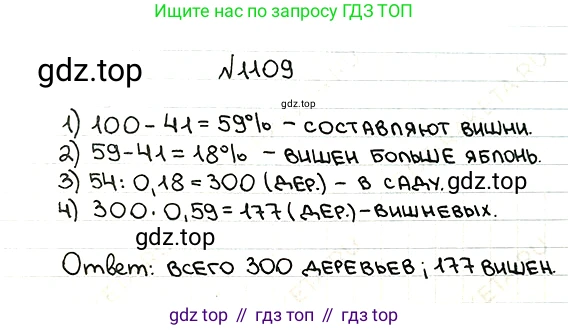 Ищите нас по запросу ГДЗ ТОП
gdz.top
№1109
gdz.top
1) 100 - 41 = 59% - составляют вишни.
2) 59 - 41 = 18% - вишен больше яблонь.
3) 54 : 0,18 = 300 (дер.) - в саду.
gdz.top
4) 300 · 0,59 = 177 (дер.) - вишневых.
gdz.top
Ответ: всего 300 деревьев; 177 вишен.
gdz top // гдз топ // гдз top